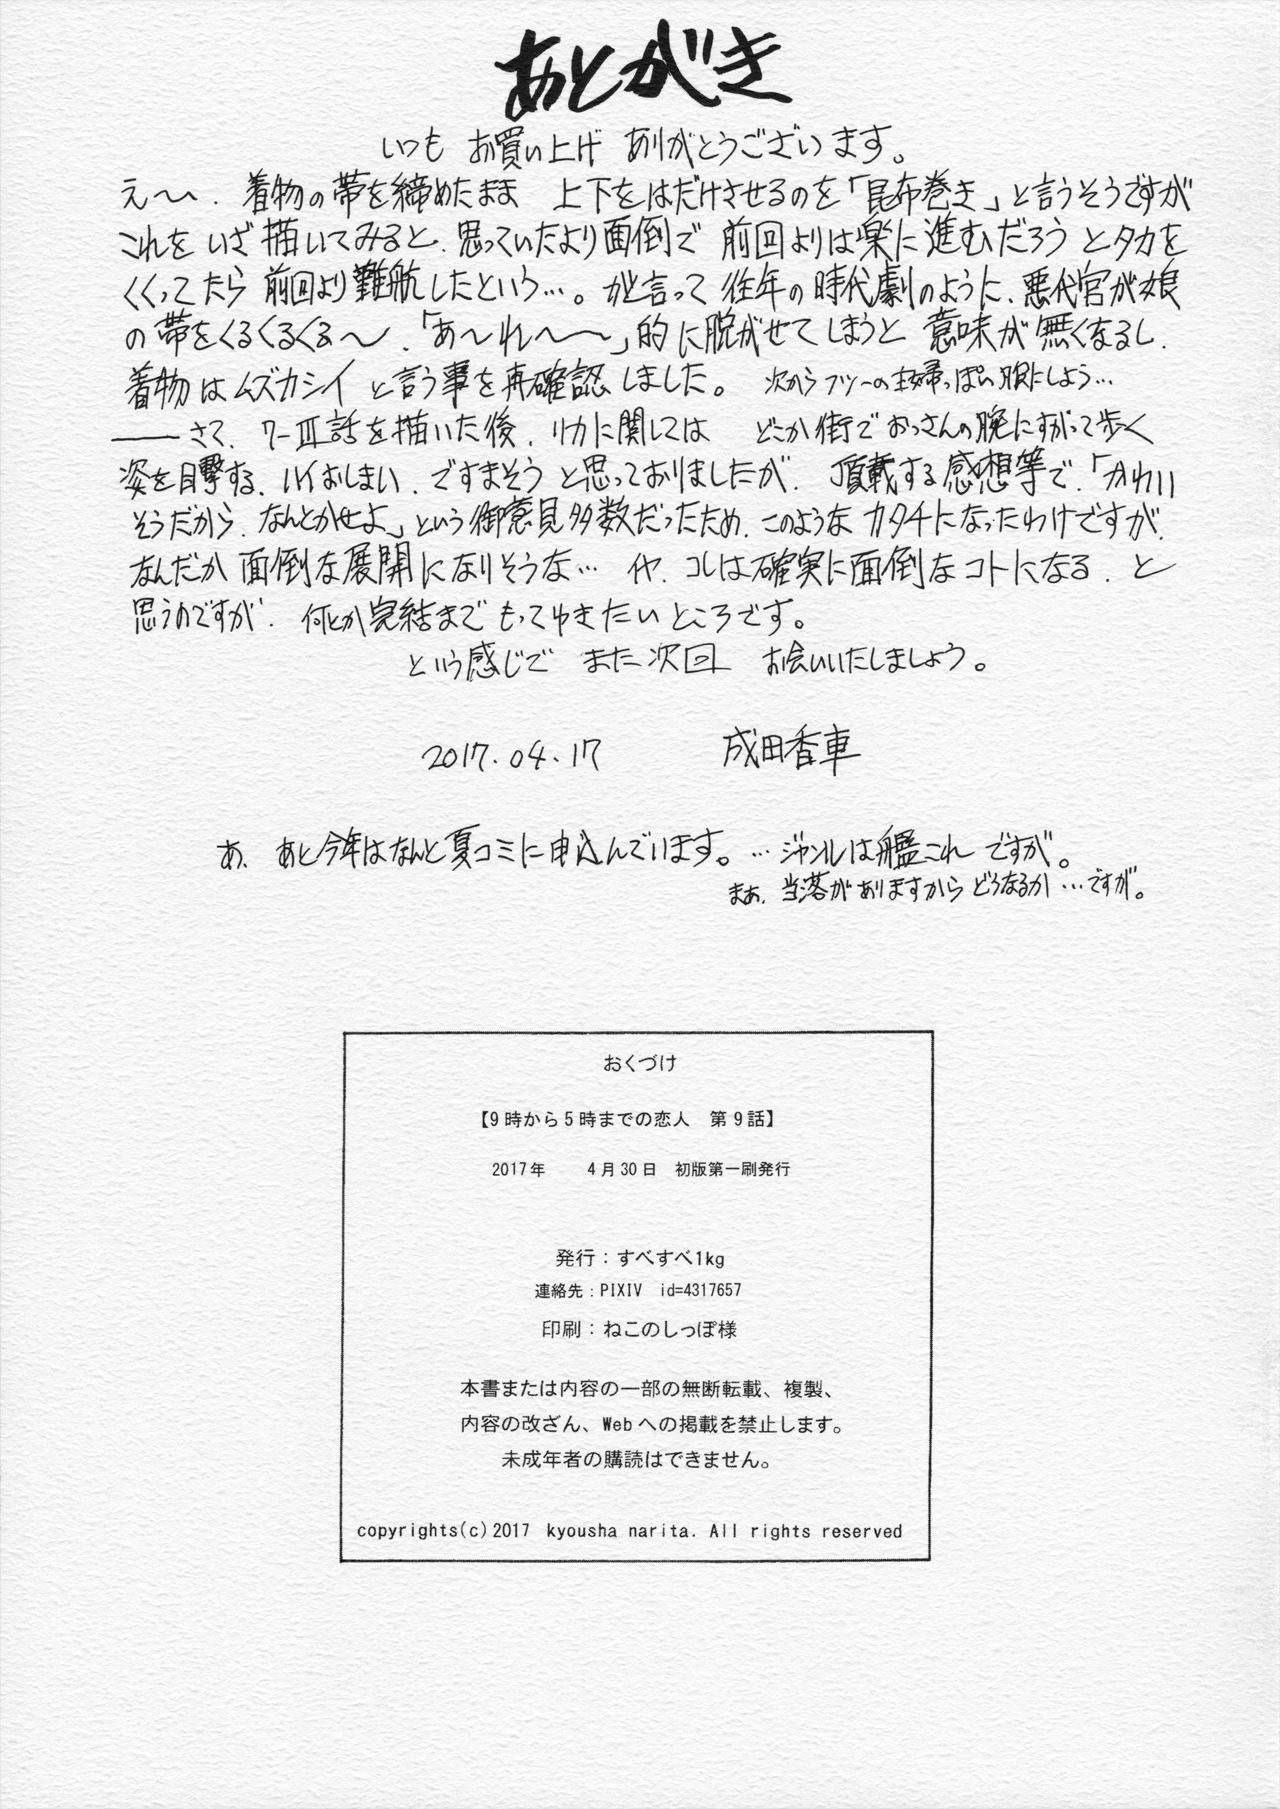 あとがき
いつも お買い上げ ありがとうございます。
え〜、着物の帯を締めたまま 上下をはだけさせるのを「昆布巻き」と言うそうですが
これを いざ描いてみると、思っていたより面倒で 前回よりは楽に進むだろう とタカを
くくってたら 前回より難航したという…。かと言って 往年の時代劇のように、悪代官が娘
の帯をくるくるくる〜、「あ〜れ〜〜」的に脱がせてしまうと 意味が無くなるし、
着物はムズカシイ と言う事を再確認しました。 次からフツーの主婦っぽい服にしよう…
――さて、7-Ⅲ話を描いた後、リカに関しては どこか街でおっさんの腕にすがって歩く
姿を目撃する、ハイおしまい、ですまそう と思っておりましたが、頂戴する感想等で、「かわい
そうだから、なんとかせよ」という御意見多数だったため、このような カタチになったわけですが、
なんだか 面倒な展開になりそうな… イヤ、コレは確実に面倒なコトになる、と
思うのですが、何とか完結まで もってゆきたいところです。
という感じで また次回 お会いいたしましょう。
2017.04.17 成田香車
あ、あと今年はなんと夏コミに申込んでいます。…ジャンルは艦これ ですが。
まぁ、当落がありますから どうなるか …ですが。
おくづけ
【9時から5時までの恋人 第9話】
2017年 4月30日 初版第一刷発行
発行：すべすべ1kg
連絡先：PIXIV id=4317657
印刷：ねこのしっぽ様
本書または内容の一部の無断転載、複製、
内容の改ざん、Webへの掲載を禁止します。
未成年者の購読はできません。
copyrights(c)2017 kyousha narita. All rights reserved